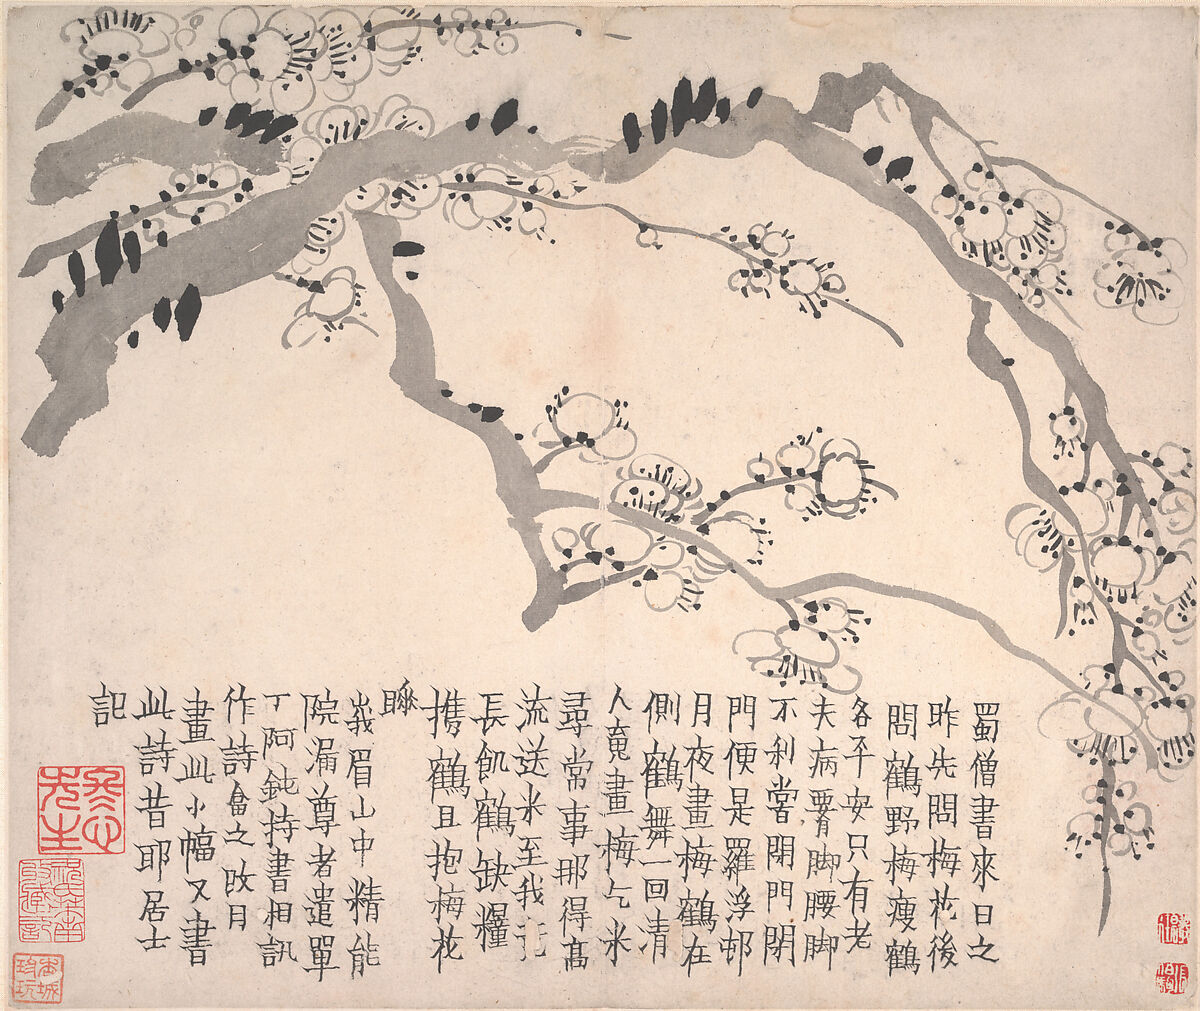 蜀僧書來日之
昨先問梅花後
問鶴野梅瘦鶴
各平安只有老
夫病腰脚腰脚
不利嘗閉門閉
門便是羅浮邨
月夜畫梅鶴在
側鶴舞一回清
人魂畫梅乞米
尋常事那得高
流送米至我
長飢鶴缺糧
攜鶴且抱梅花
睡
峩眉山中精能
院漏尊者遣單
丁阿鈍持書相訊
作詩畣之改月
畫此小幅又書
此詩昔耶居士
記
冬心先生